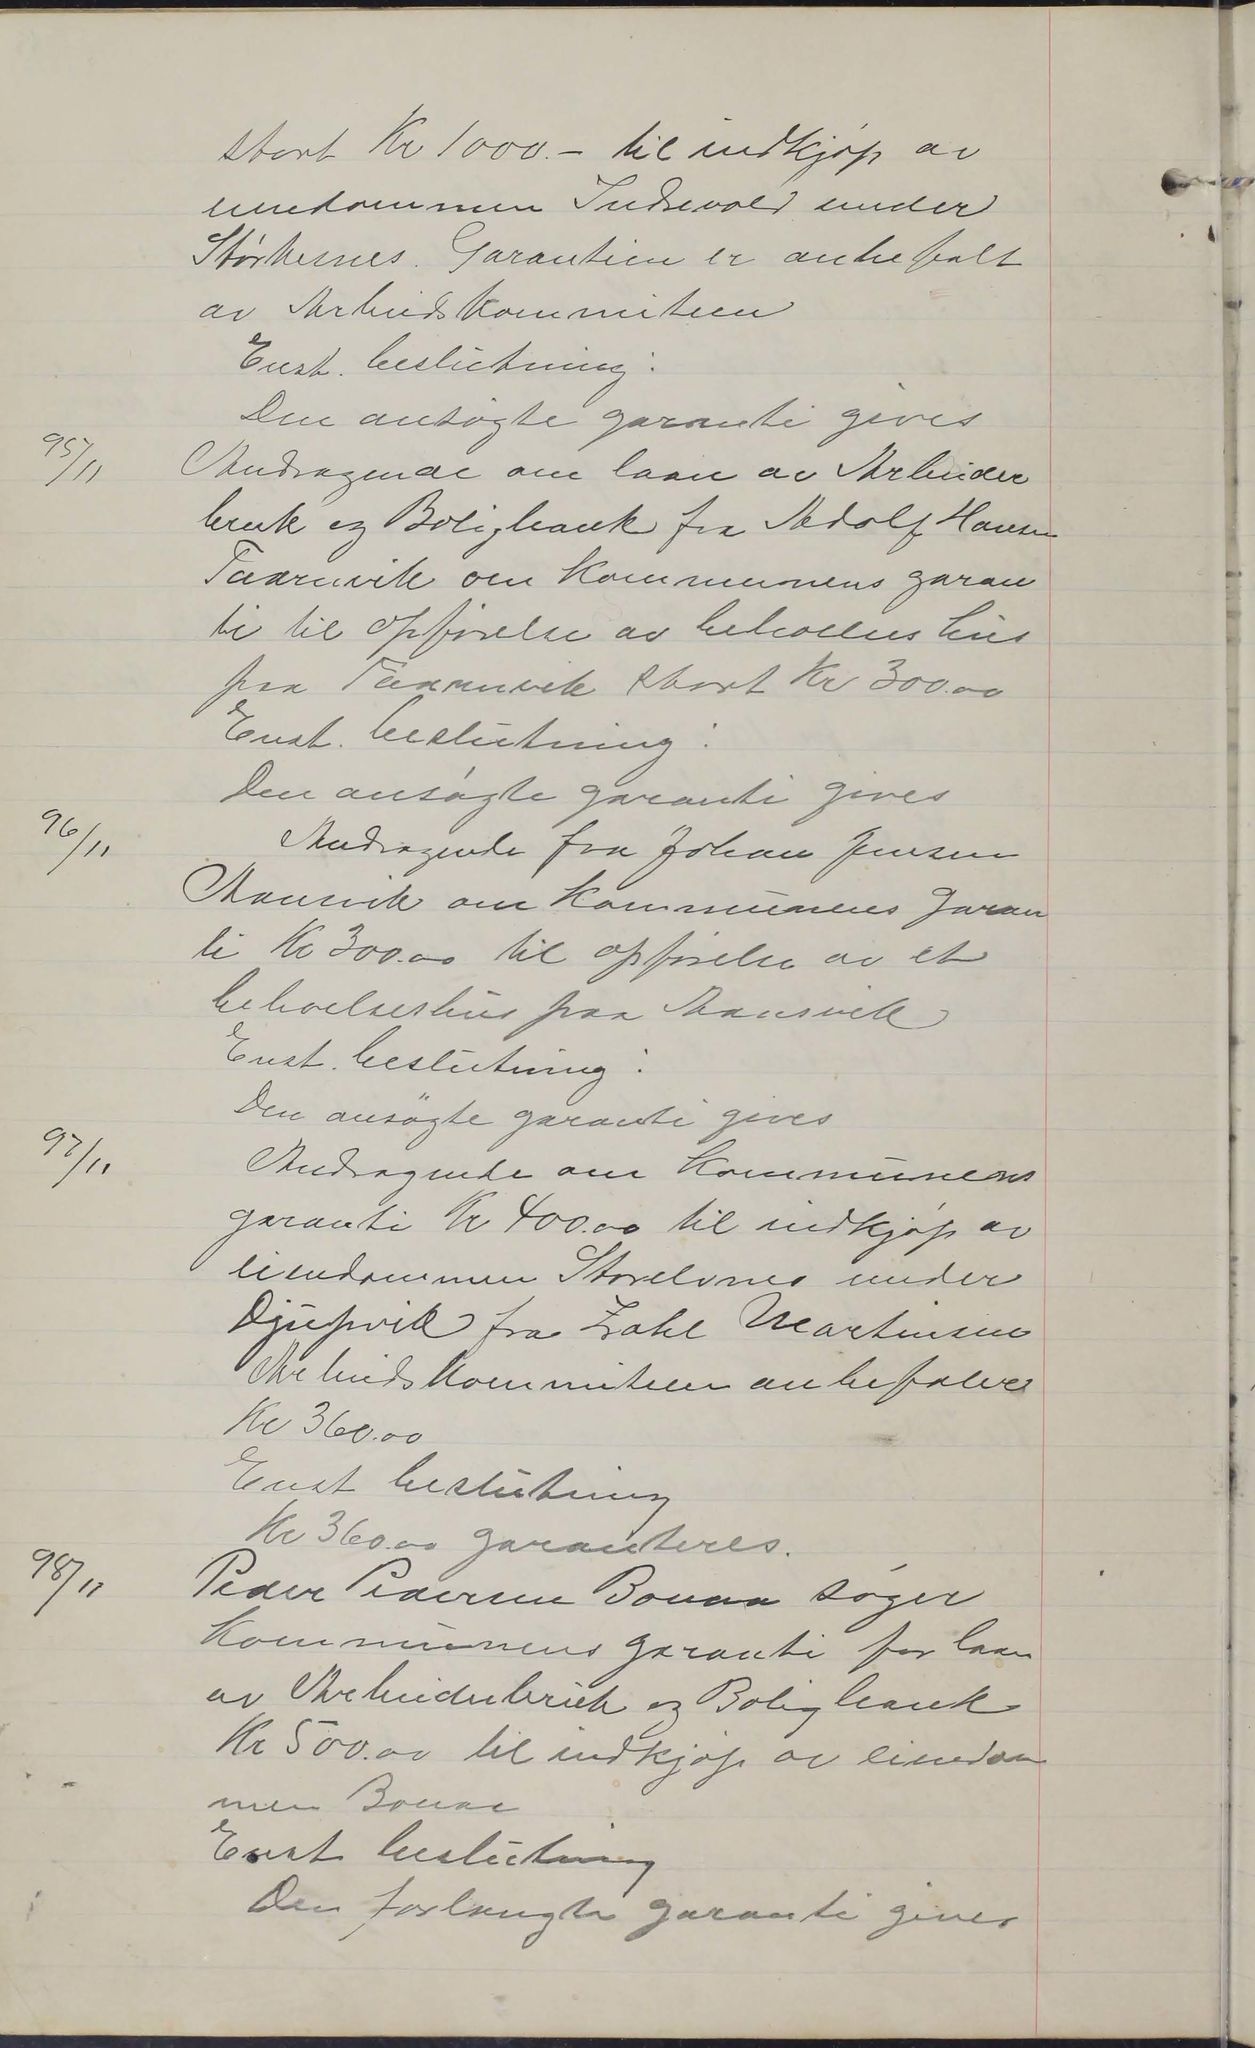 stort Kr 1000.- til indkjøp av
eiendommen Indrevold under
Størkesnes. Garantien er anbefalt
av Arbeidskommiteen
Enst. beslutning:
Den ansøgte garanti gives
95/11 Andragende om laan av Arbeider
bruk og Boligbank fra Adolf Hansen
Taarnvik om kommunens garan
ti til opførelse av beboelses hus
paa Taarnvik stort Kr 300.00
Enst. beslutning:
Den ansøgte garanti gives
96/11 Andragende fra Johan Jensen
Mansvik om kommunens garan
ti Kr 300.00 til opførelse av et
beboelseshus paa Mansvik
Enst. beslutning:
Den ansøgte garanti gives
97/11 Andragende om kommunens
garanti Kr 400.00 til indkjøp av
eiendommen Storelvnes under
Djupvik fra Zahl Martinsen
Arbeidskommiteen anbefaler
Kr 360.00
Enst beslutning
Kr 360.00 garanteres.
98/11 Peder Pedersen Bonaa søger
kommunens garanti for laan
av Arbeiderbruk og Boligbank
Kr 500.00 til indkjøp av eiendom
men Bonaa
Enst beslutning
Den forlangte garanti gives